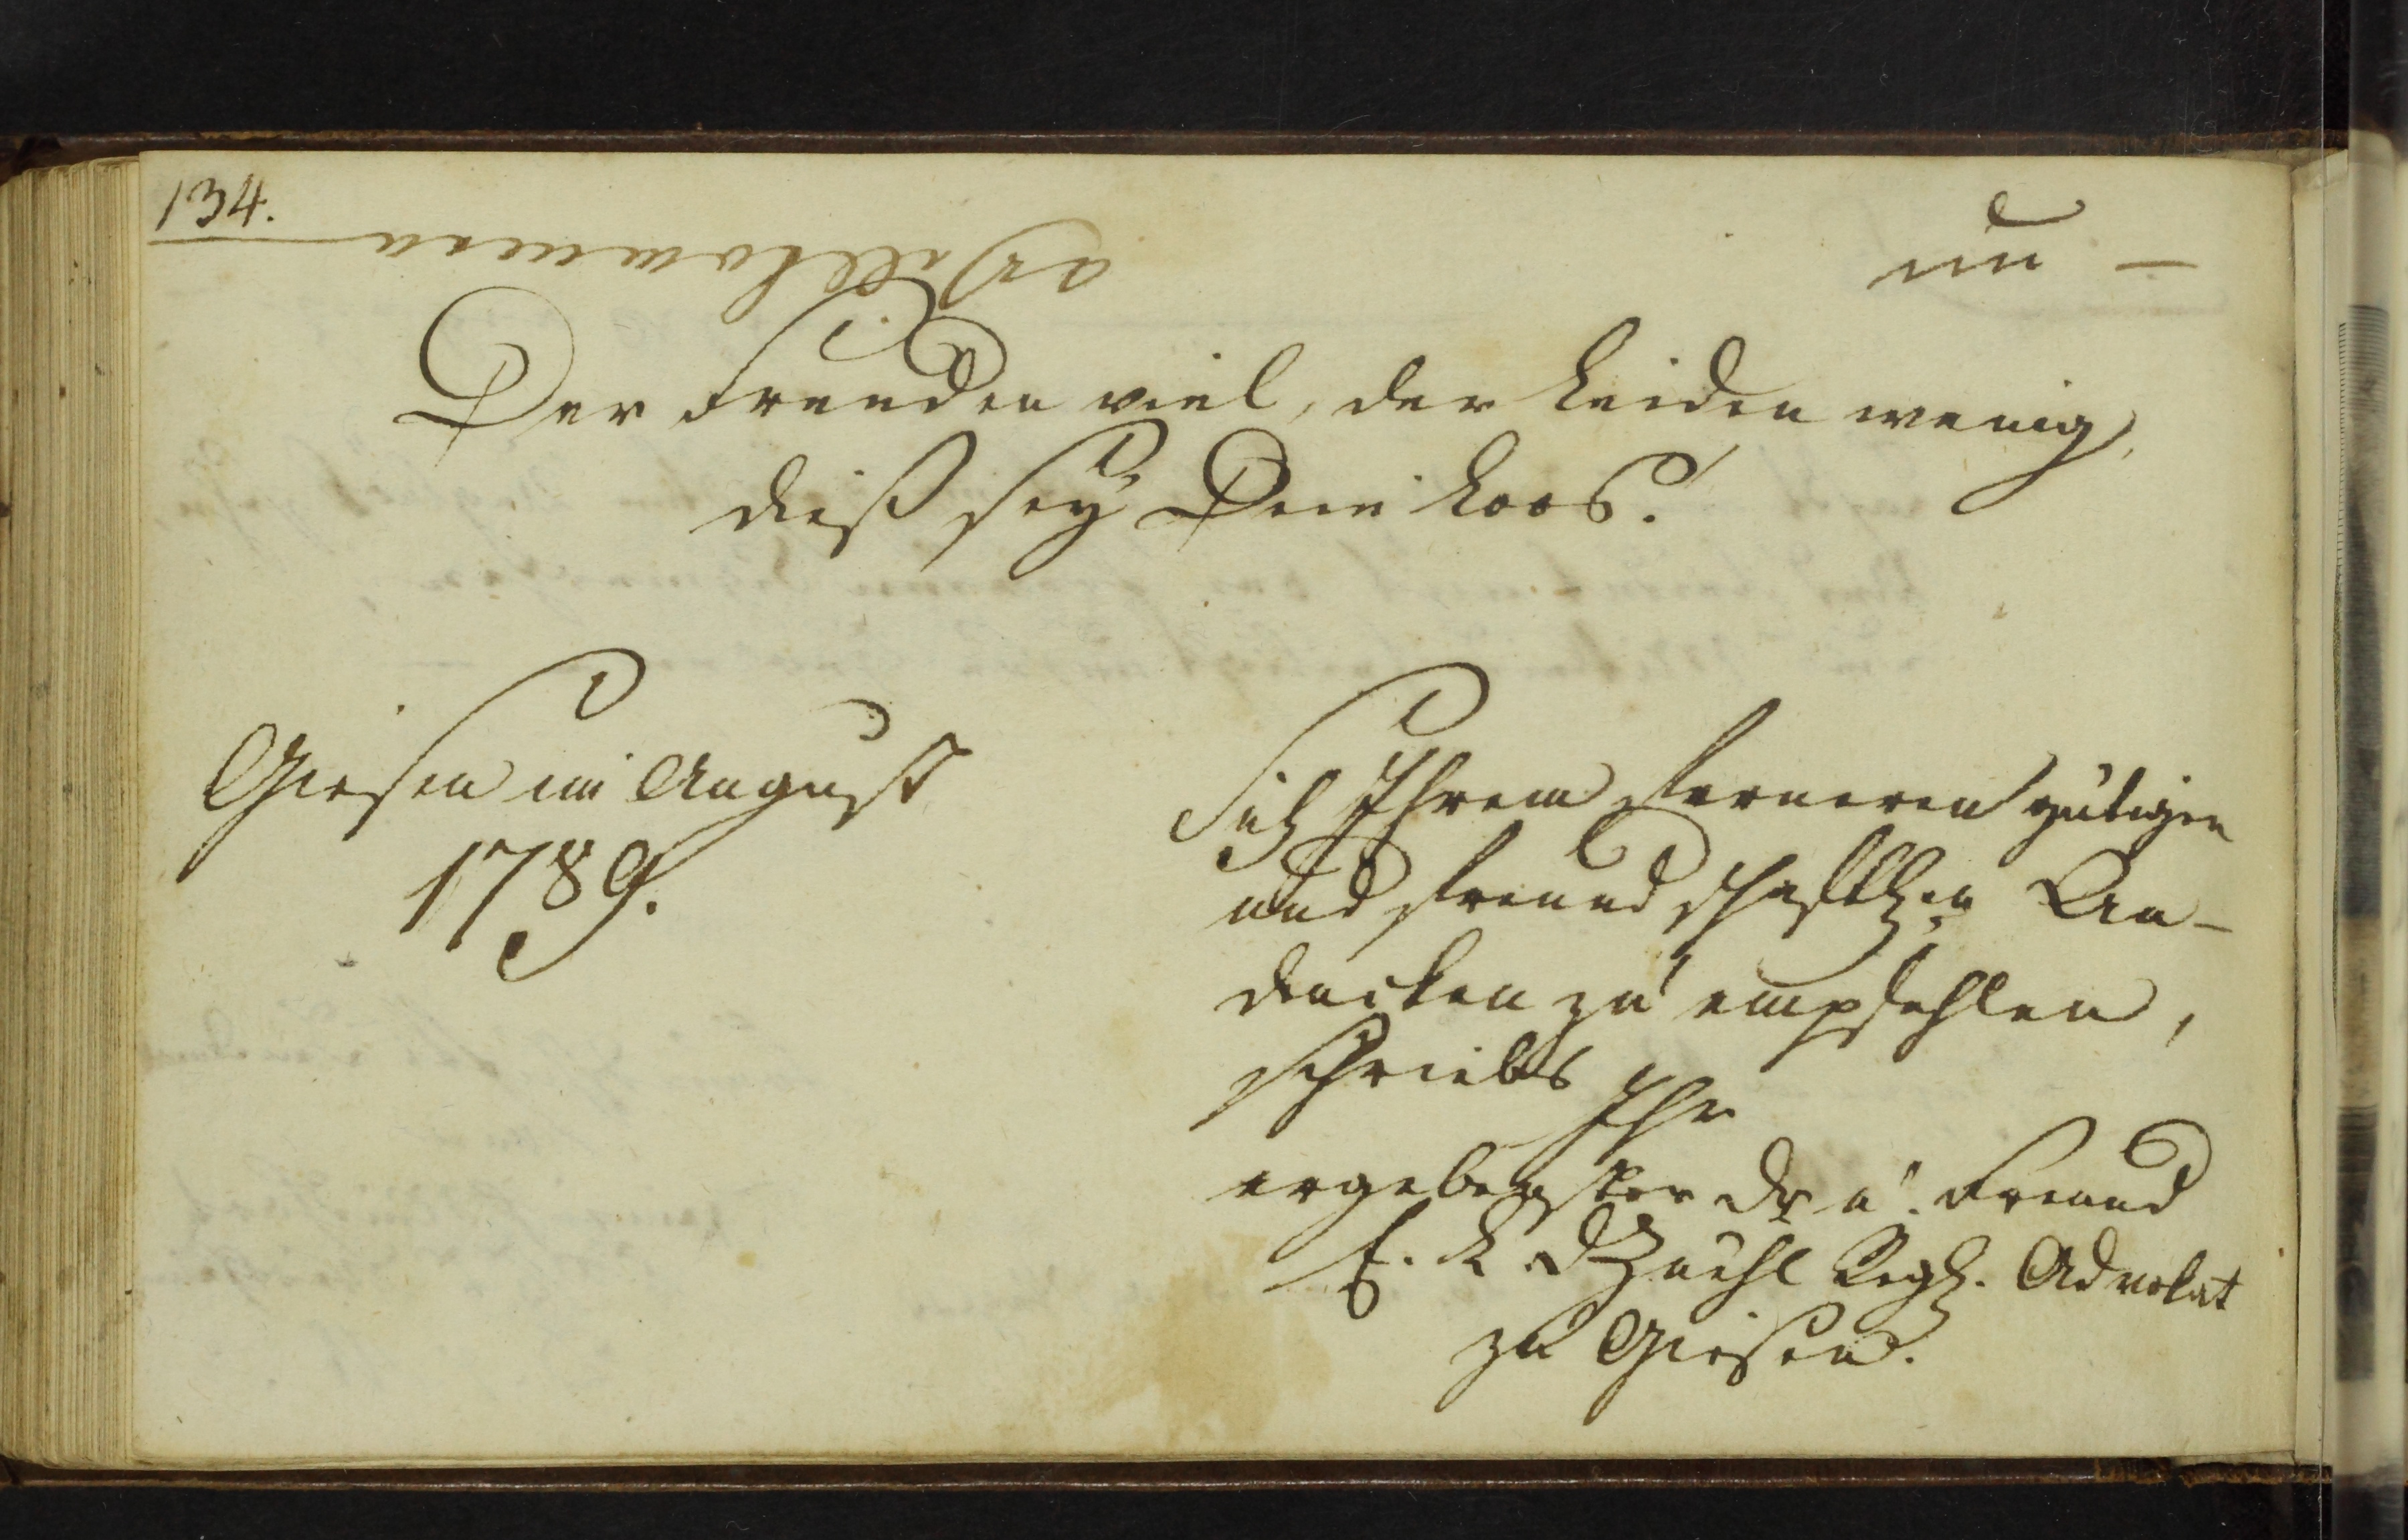 134.
Der Freuden viel, der Leiden wenig,
dieß sey Dein Loos!
Giesen im August
1789.
Sich Ihrem ferneren gütigen
und freundschaftlichen An-
dencken zu empfehlen,
schriebs Ihr
ergebenster Dr u. Freund
Advokat
zu Giesen.